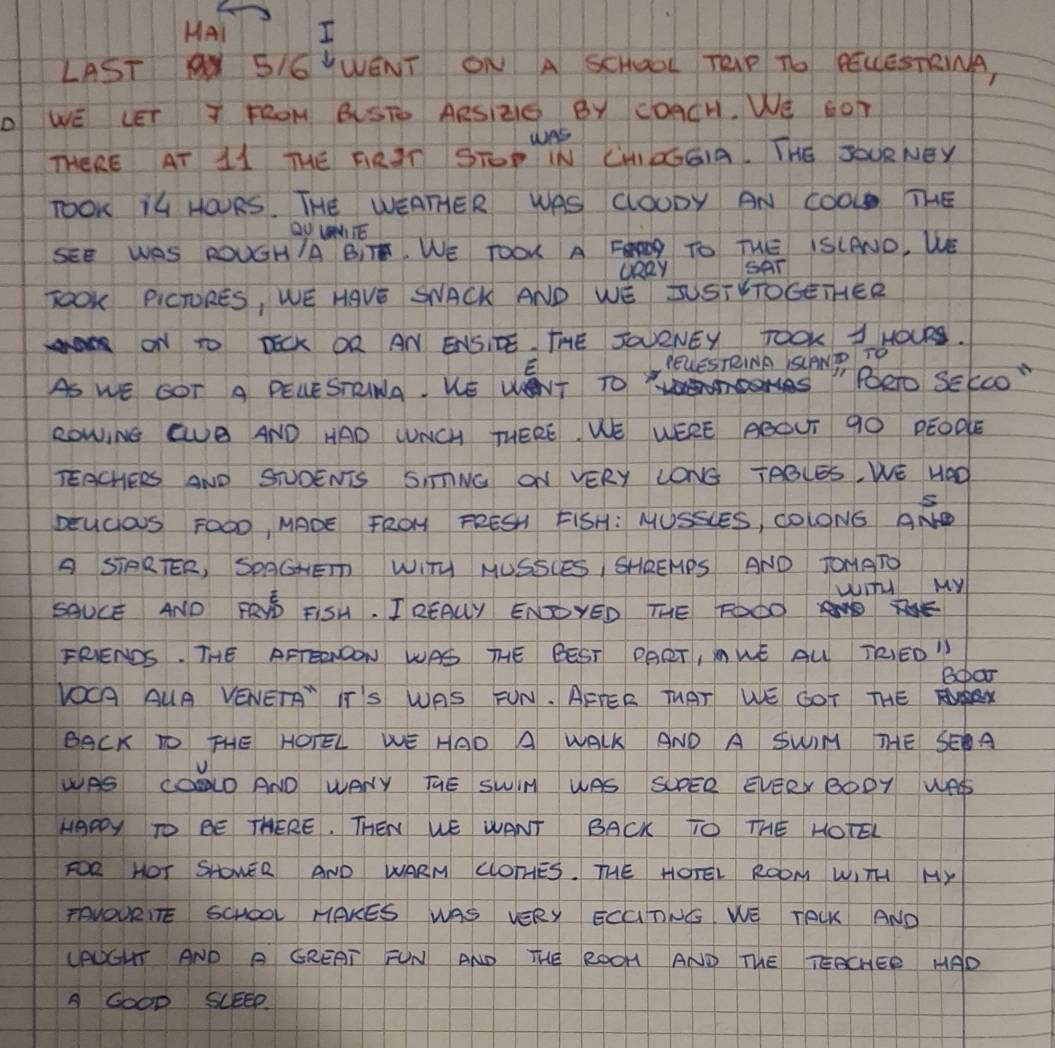 MAI I
LAST 5/6 WENT ON A SCHOOL TRIP TO PELLESTRINA,
WE LET 7 FROM BUSTO ARSIZIO BY COACH. WE GOT
WAS
THERE AT 11 THE FIRST STOP IN CHIOGGIA. THE JOURNEY
TOOK 14 HOURS. THE WEATHER WAS CLOUDY AN COOLD THE
QUWITE
SEE WAS ROUGH/A BIT. WE TOOK A TO THE ISLAND. WE
URRY SAT
TOOK PICTURES, WE HAVE SNACK AND WE JUST TOGETHER
ON TO DECK OR AN ENSIDE. THE JOURNEY TOOK 1 HOURS.
E PELLESTRINA ISLAND TO
AS WE GOT A PELLESTRINA. WE WENT TO "PORTO SECCO"
ROWING CLUB AND HAD LUNCH THERE. WE WERE ABOUT 90 PEOPLE
TEACHERS AND STUDENTS SITTING ON VERY LONG TABLES. WE HAD
S
DELICIOUS FOOD, MADE FROM FRESH FISH: MUSSLES, COLONG AND
A STARTER, SPAGHETTI WITH MUSSLES, SHREMPS AND TOMATO
E WITH MY
SAUCE AND FRYD FISH. I REALLY ENJOYED THE FOOD
FRIENDS. THE AFTERNOON WAS THE BEST PART, WE ALL TRIED "
BOAT
VOCA ALLA VENETA" IT'S WAS FUN. AFTER THAT WE GOT THE
BACK TO THE HOTEL WE HAD A WALK AND A SWIM THE SEA
U
WAS COOLD AND WANY THE SWIM WAS SUPER EVERY BODY WAS
HAPPY TO BE THERE. THEN WE WANT BACK TO THE HOTEL
FOR HOT SHOWER AND WARM CLOTHES. THE HOTEL ROOM WITH MY
FAVOURITE SCHOOL MAKES WAS VERY ECCITING WE TALK AND
LAUGHT AND A GREAT FUN AND THE ROOM AND THE TEACHER HAD
A GOOD SLEEP.